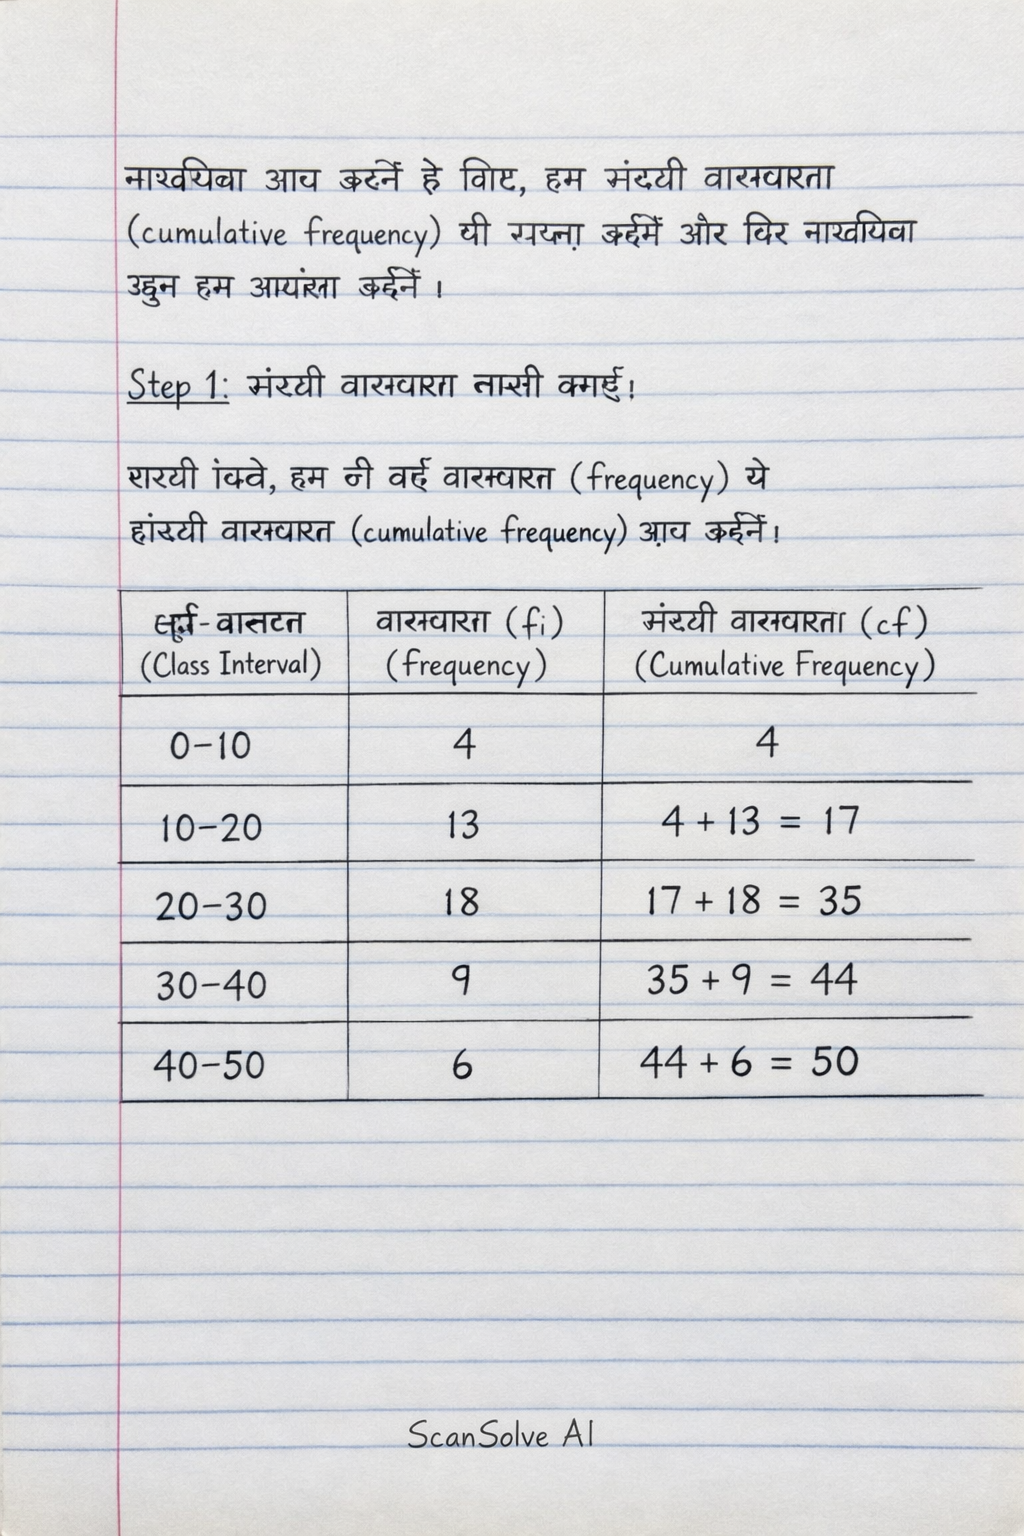 नाखयिबा आच करनें हे विाट, हम मंदयी वारवारता
(cumulative frequency) यी सयना कईमें और विर नाखयिवा
उद्दुन हम आयांरता कईनें ।
Step 1: मंरयी वारवारता तासी क्माई!
शरयी iंकवे, हम नी वई वारवारत (frequency) ये
हांदयी वारवारत (cumulative frequency) आच कईनें!
वासटत
(Class Interval)
वारवारता (fi)
(frequency)
मंदयी वारवारता (cf)
(Cumulative Frequency)
0-10 4 4
10-20 13 4 + 13 = 17
20-30 18 17 + 18 = 35
30-40 9 35 + 9 = 44
40-50 6 44 + 6 = 50
ScanSolve AI